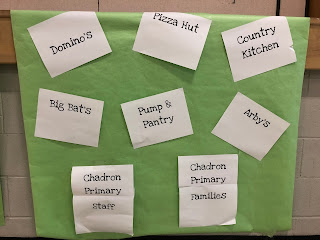 Domino's
Pizza Hut
Country
Kitchen
Big Bat's
Pump &
Pantry
Arby's
Chadron
Primary
Staff
Chadron
Primary
Families